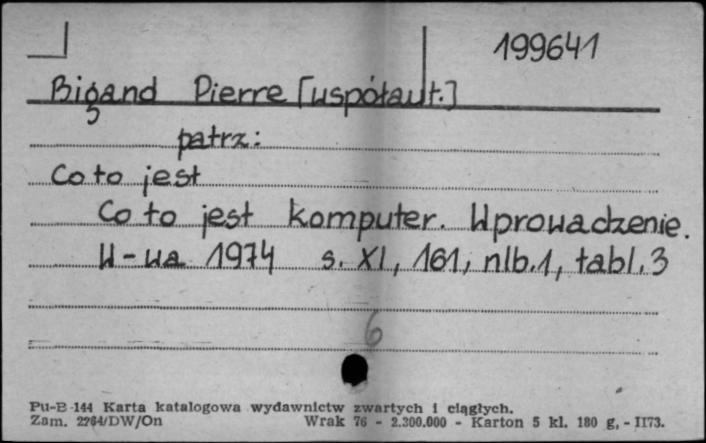 199641
Bigand Pierre [współaut.]
patrz:
Co to jest
Co to jest komputer. Wprowadzenie.
W-wa 1974 s. XI, 161, nlb.1, tabl.3
6
Pu-B-144 Karta katalogowa wydawnictw zwartych i ciągłych.
Zam. 2264/DW/On Wrak 76 - 2.300.000 - Karton 5 kl. 180 g, - II73.